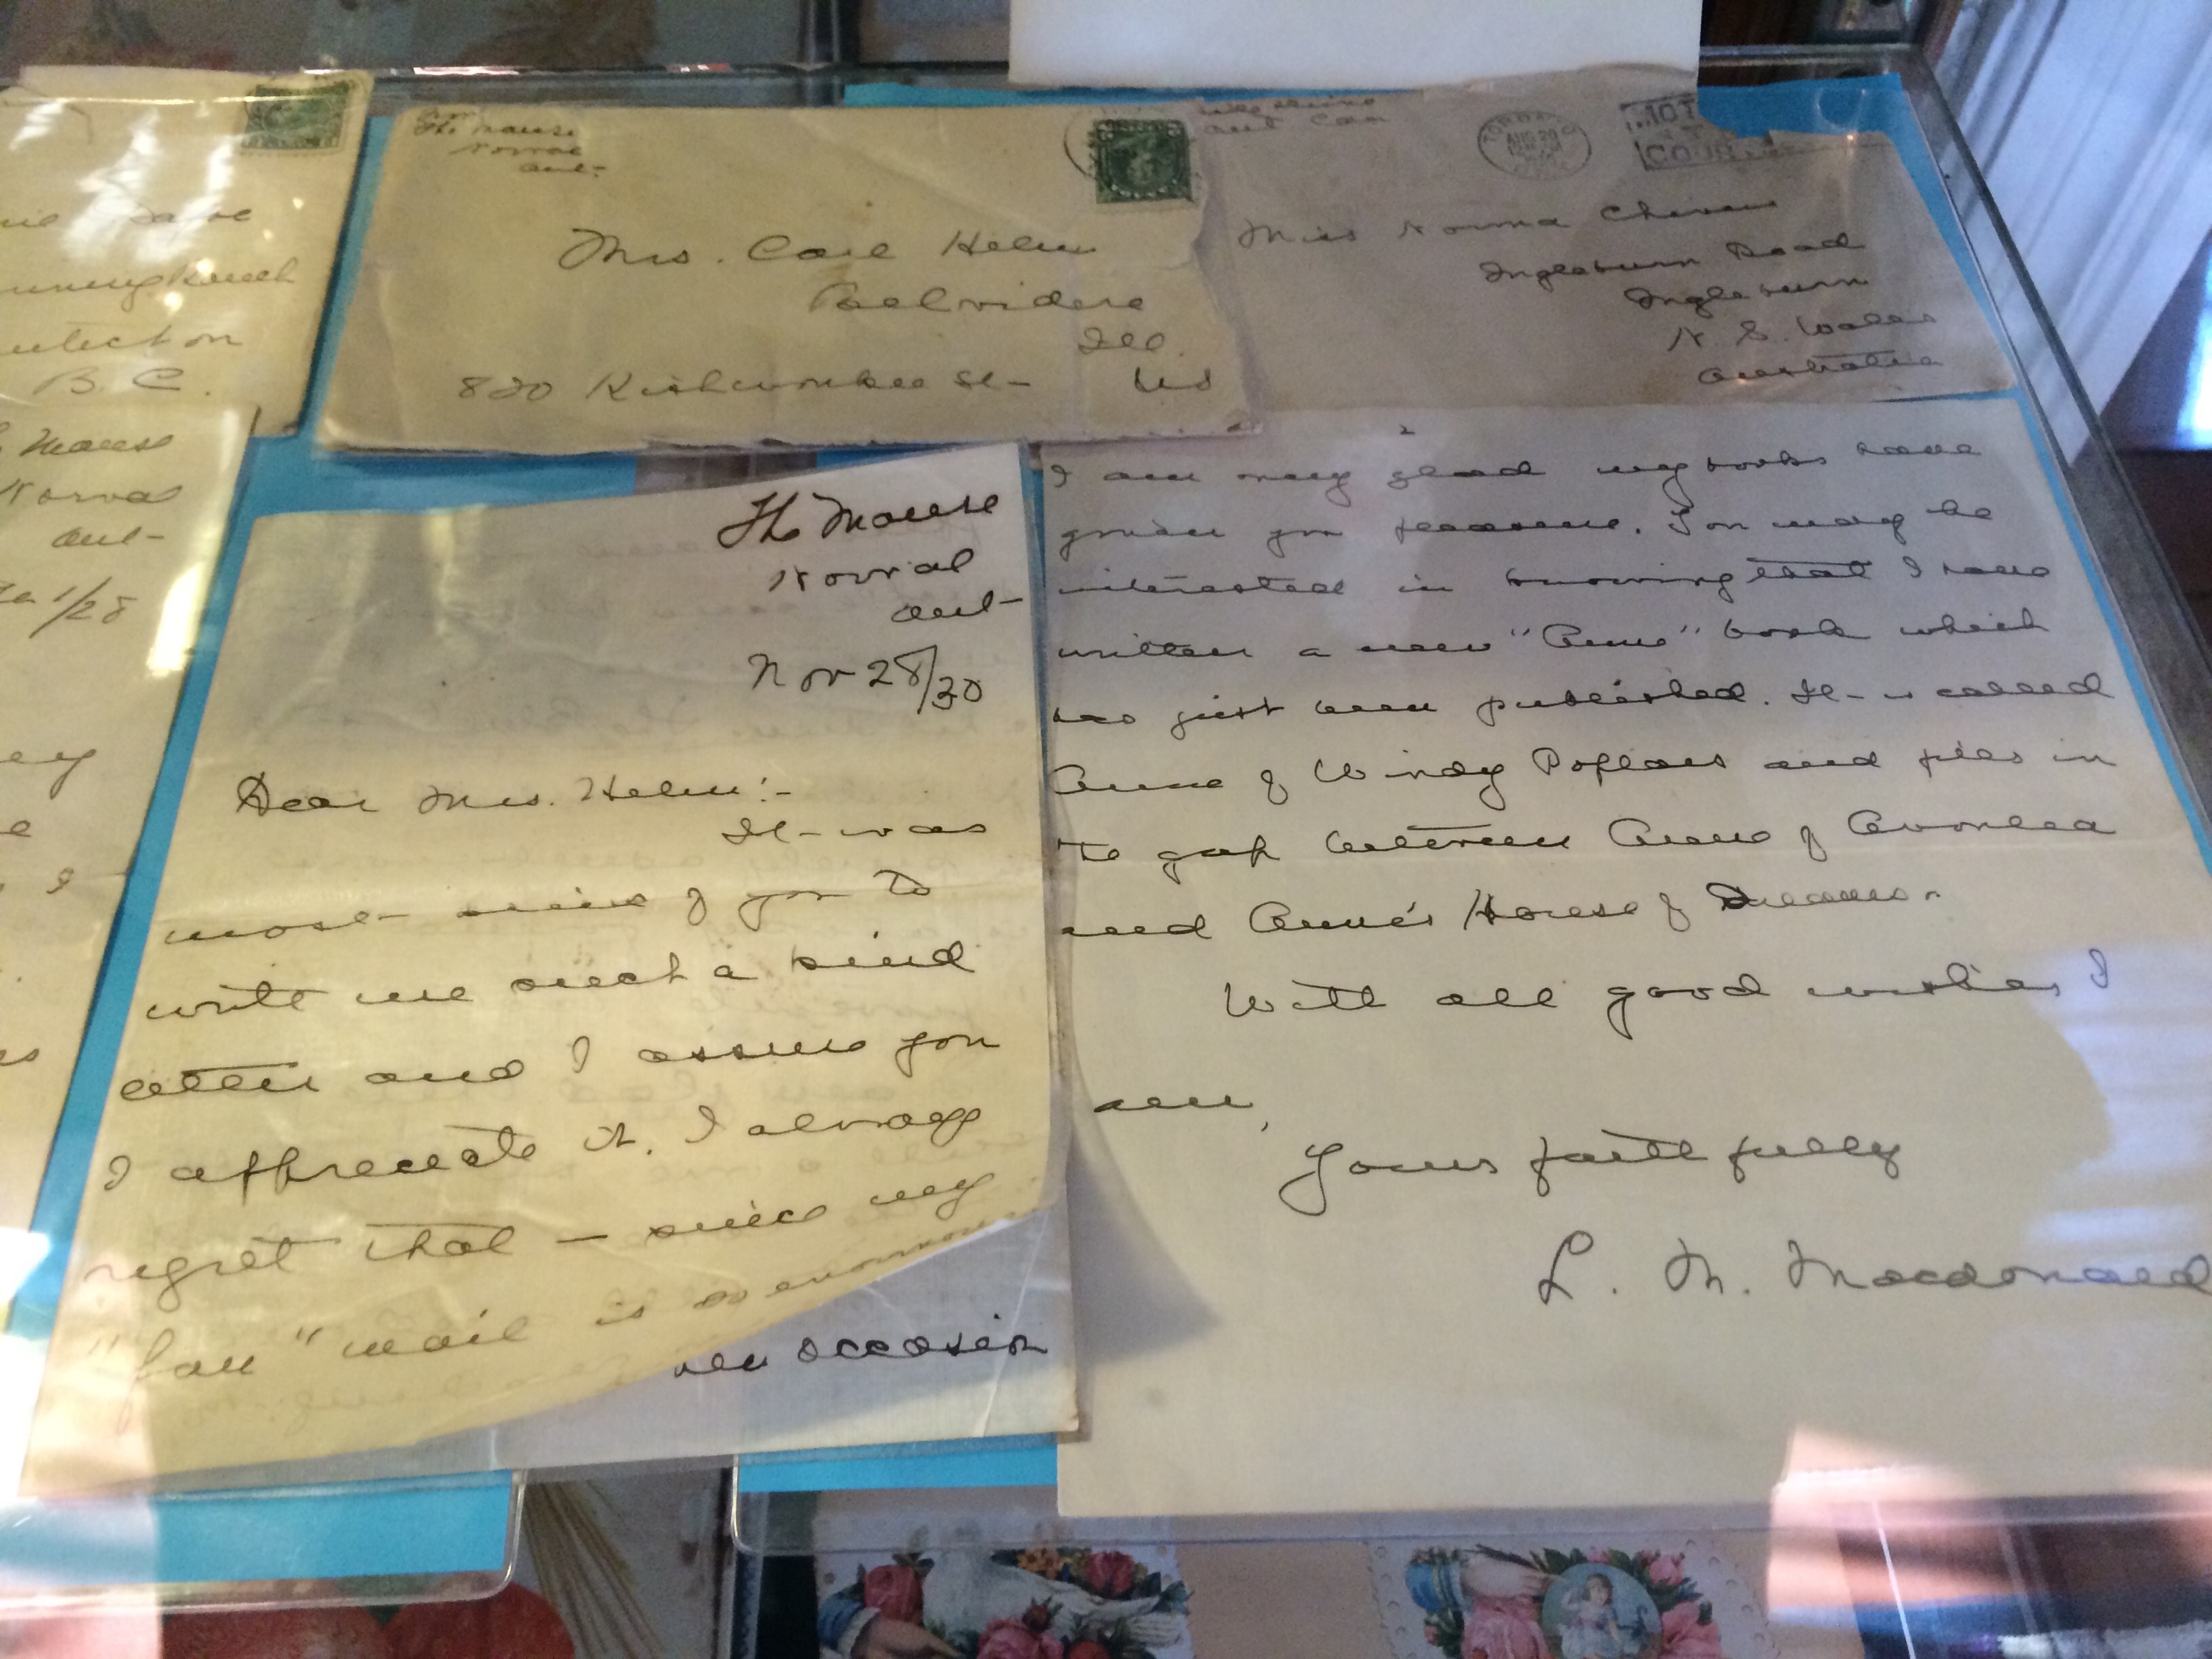 B. C.
Manse
Norval
Ont-
1/28
The Manse
Norval
Ont-
Mrs. Carl Helm
Belvidere
Ill.
820 Kishwaukee St- US
Ont Can
TORONTO
AUG 20
Miss Norma Chivers
Ingleburn Road
Ingleburn
N. S. Wales
Australia
The Manse
Norval
Ont-
Nov 28/30
Dear Mrs. Helm:-
It- was
most- nice of you to
write me such a kind
letter and I assure you
I appreciate it. I always
regret that - since my
"fan" mail is so enormous
occasion
2
I am very glad my books have
given you pleasure. You may be
interested in knowing that I have
written a new "Anne" book which
has just been published. It- is called
Anne of Windy Poplars and fills in
the gap between Anne of Avonlea
and Anne's House of Dreams.
With all good wishes, I
am,
Yours faithfully
L. M. Macdonald